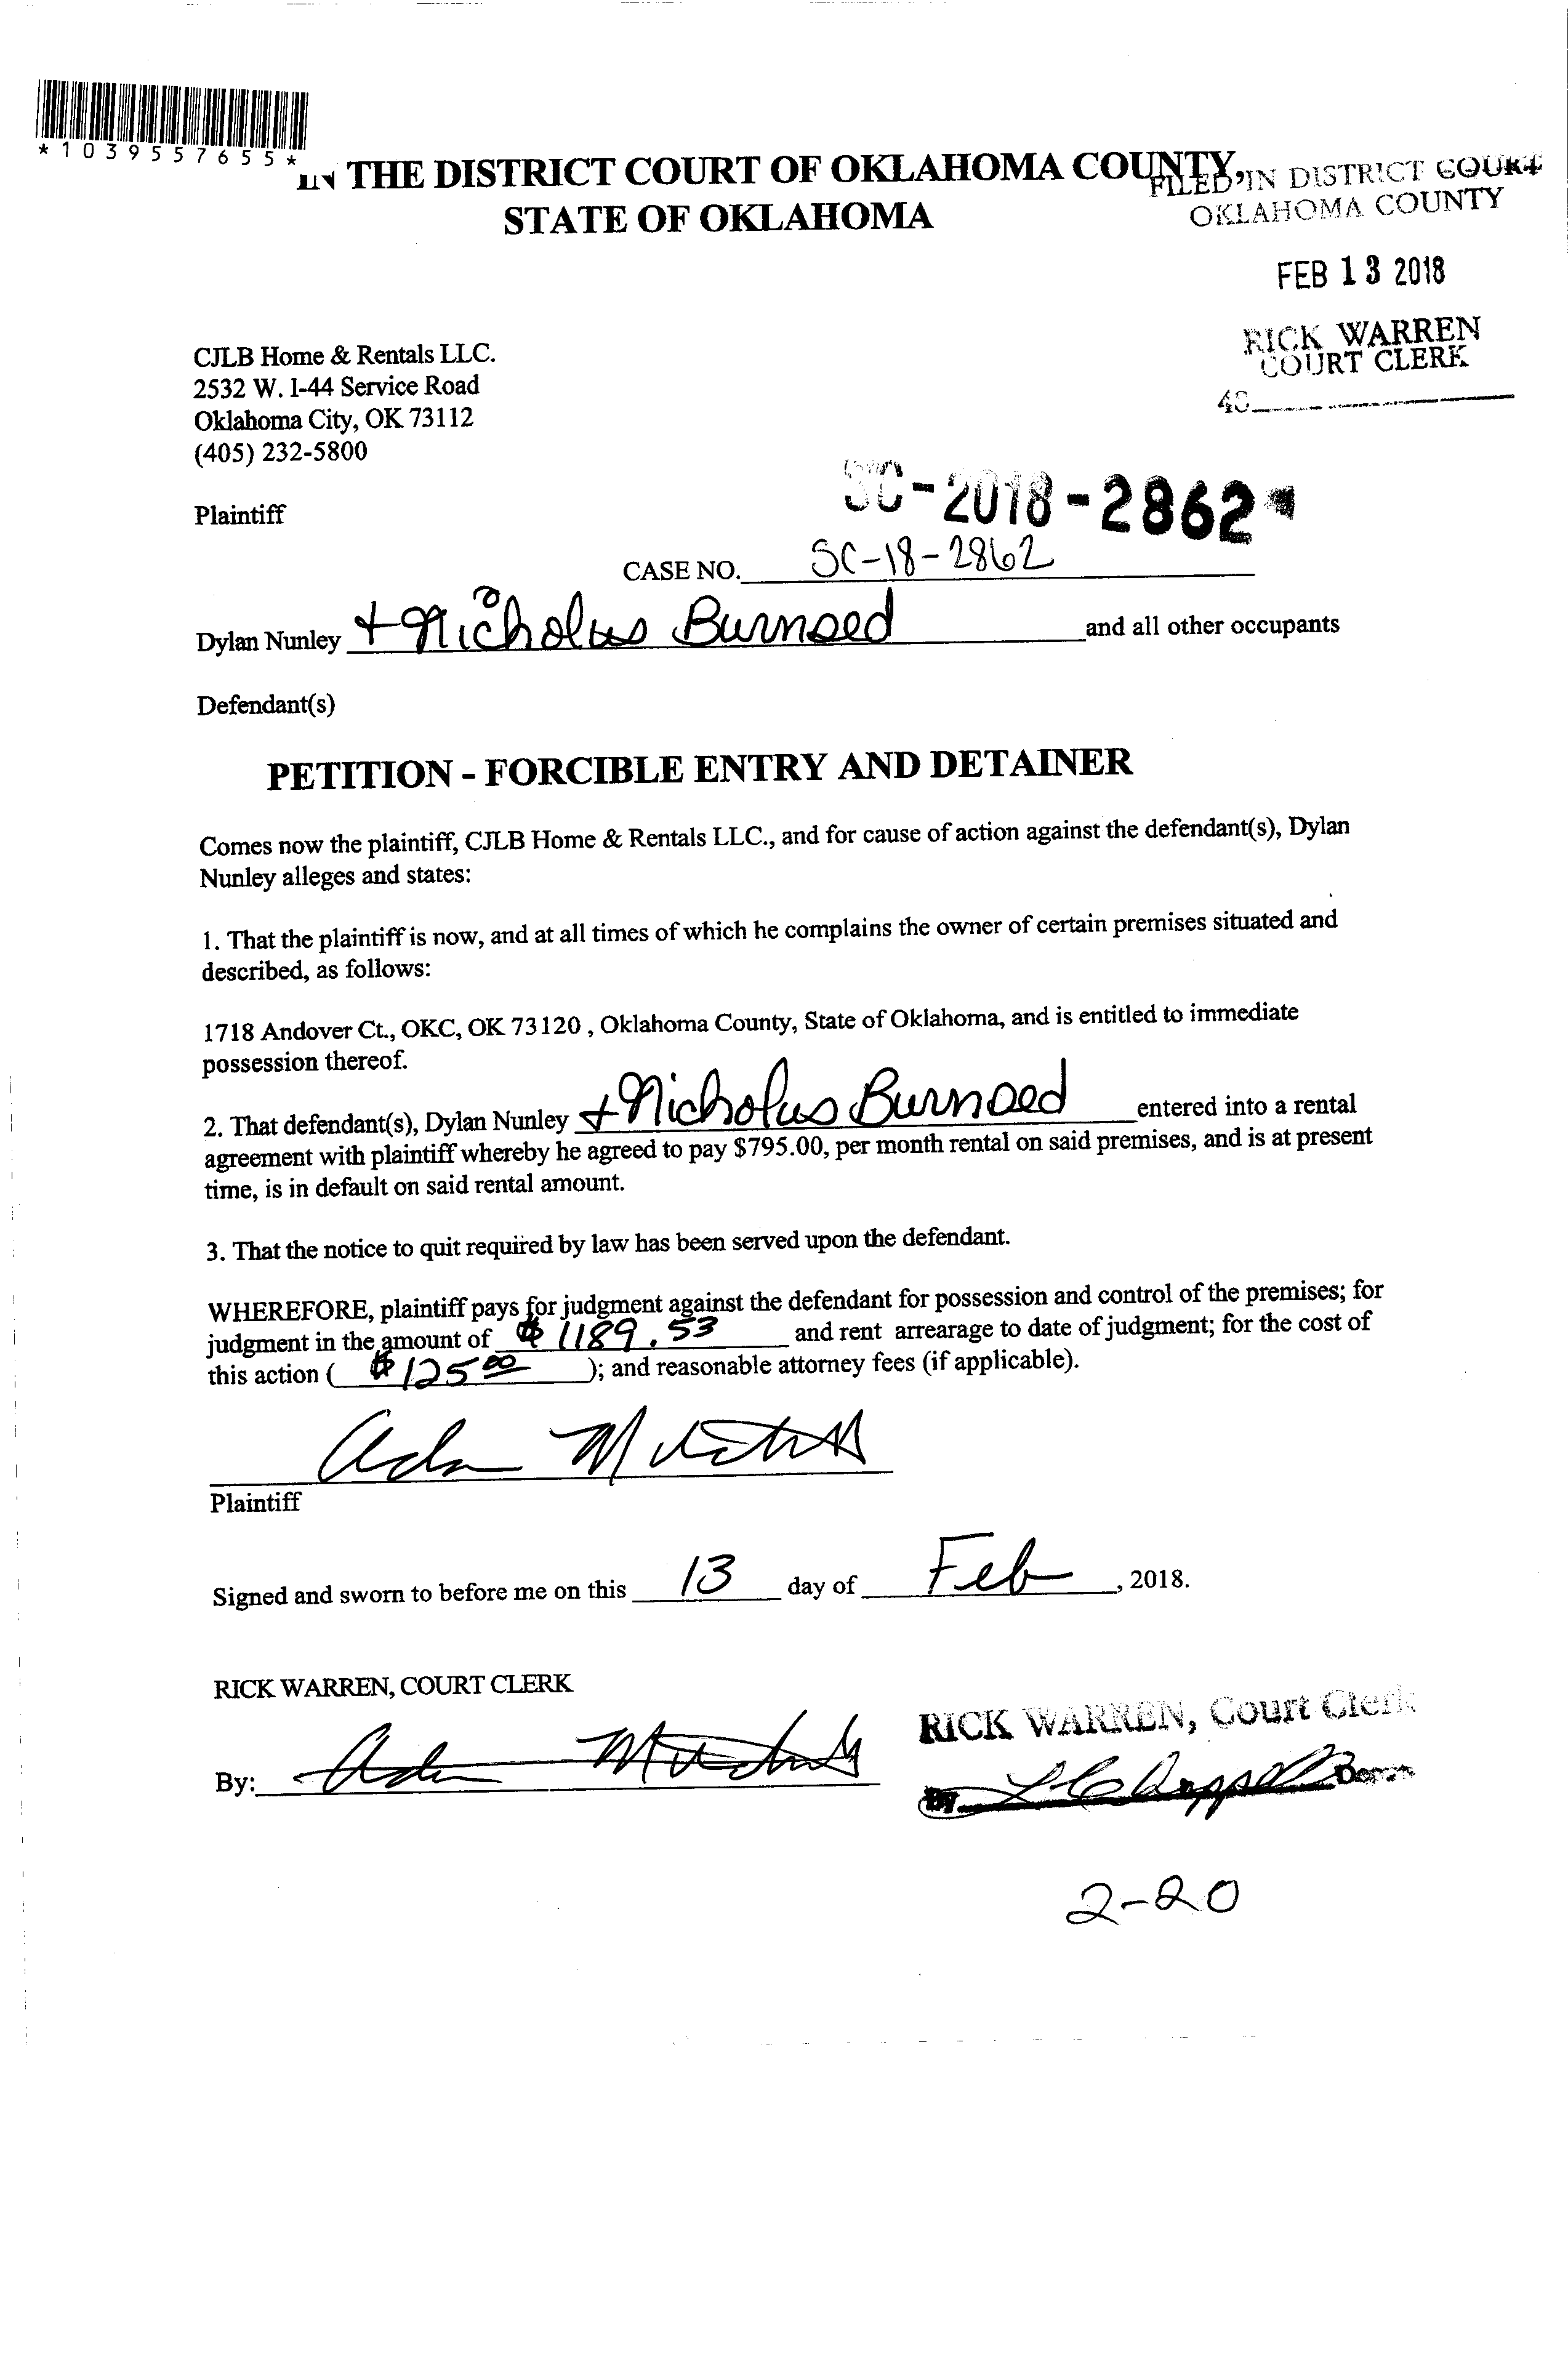 *1039557655*
IN THE DISTRICT COURT OF OKLAHOMA COUNTY,
STATE OF OKLAHOMA
FILED IN DISTRICT COURT
OKLAHOMA COUNTY
FEB 13 2018
RICK WARREN
COURT CLERK
CJLB Home & Rentals LLC.
2532 W. I-44 Service Road
Oklahoma City, OK 73112
(405) 232-5800
Plaintiff
SC-2018-2862
CASE NO. SC-18-2862
Dylan Nunley + Nicholas Burnsed and all other occupants
Defendant(s)
PETITION - FORCIBLE ENTRY AND DETAINER
Comes now the plaintiff, CJLB Home & Rentals LLC., and for cause of action against the defendant(s), Dylan
Nunley alleges and states:
1. That the plaintiff is now, and at all times of which he complains the owner of certain premises situated and
described, as follows:
1718 Andover Ct., OKC, OK 73120 , Oklahoma County, State of Oklahoma, and is entitled to immediate
possession thereof.
2. That defendant(s), Dylan Nunley + Nicholas Burnsed entered into a rental
agreement with plaintiff whereby he agreed to pay $795.00, per month rental on said premises, and is at present
time, is in default on said rental amount.
3. That the notice to quit required by law has been served upon the defendant.
WHEREFORE, plaintiff pays for judgment against the defendant for possession and control of the premises; for
judgment in the amount of $1189.53 and rent arrearage to date of judgment; for the cost of
this action ( $125.00 ); and reasonable attorney fees (if applicable).
Plaintiff
Signed and sworn to before me on this 13 day of Feb, 2018.
RICK WARREN, COURT CLERK
By:
RICK WARREN, Court Clerk
By
2-20